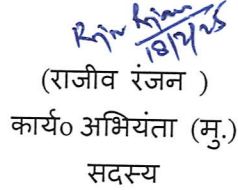 Rajiv Ranjan
18/2/25
(राजीव रंजन )
कार्य० अभियंता (मु.)
सदस्य